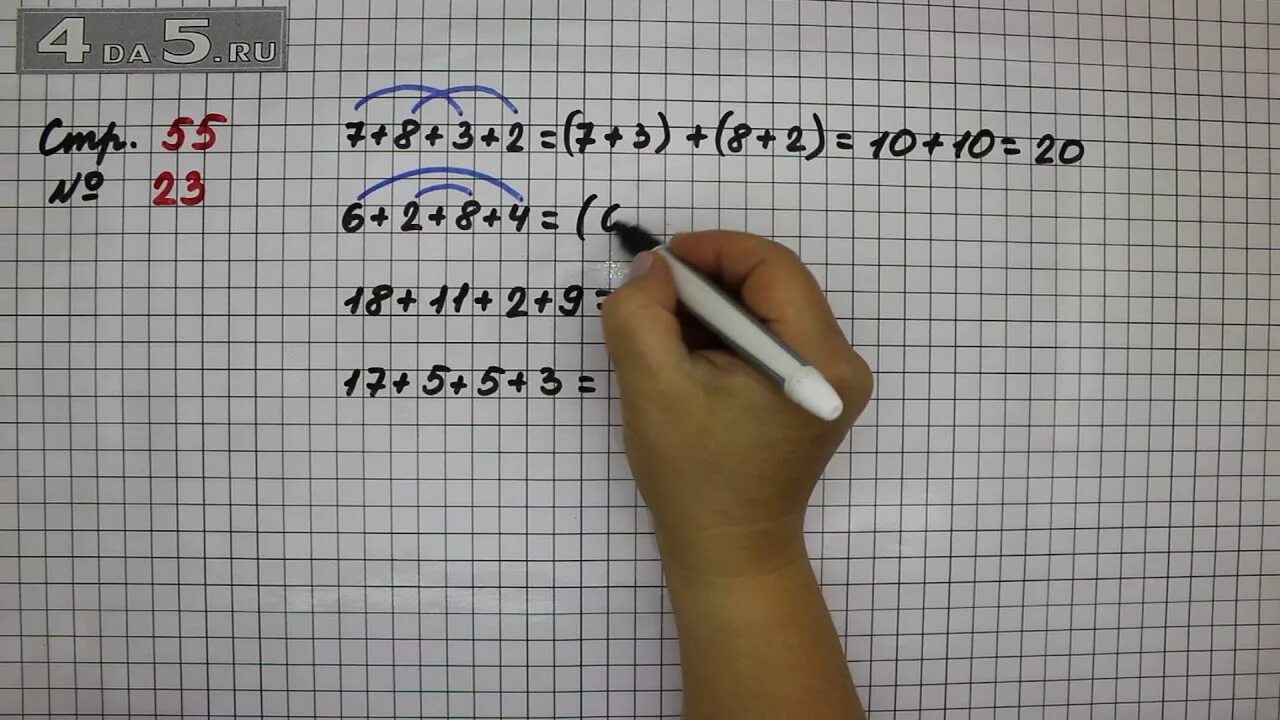 4DA5.RU
Стр. 55
№ 23
7+8+3+2=(7+3)+(8+2)=10+10=20
6+2+8+4=(6
18+11+2+9=
17+5+5+3=